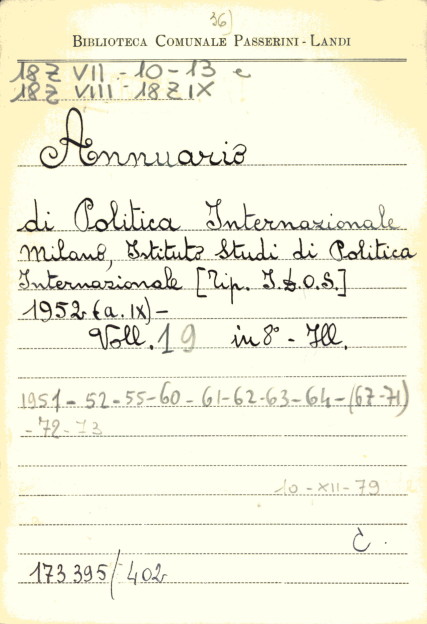 36)
BIBLIOTECA COMUNALE PASSERINI - LANDI
18Z VII - 10 - 13 e
18Z VIII - 18Z IX
Annuario
di Politica Internazionale
Milano, Istituto Studi di Politica
Internazionale [Tip. I.G.O.S.]
1952 (a. IX) -
Voll. 19 in 8° - Ill.
1951 - 52 - 55 - 60 - 61 - 62 - 63 - 64 - (67-71)
- 72 - 73
10 - XII - 79
C.
173395/402